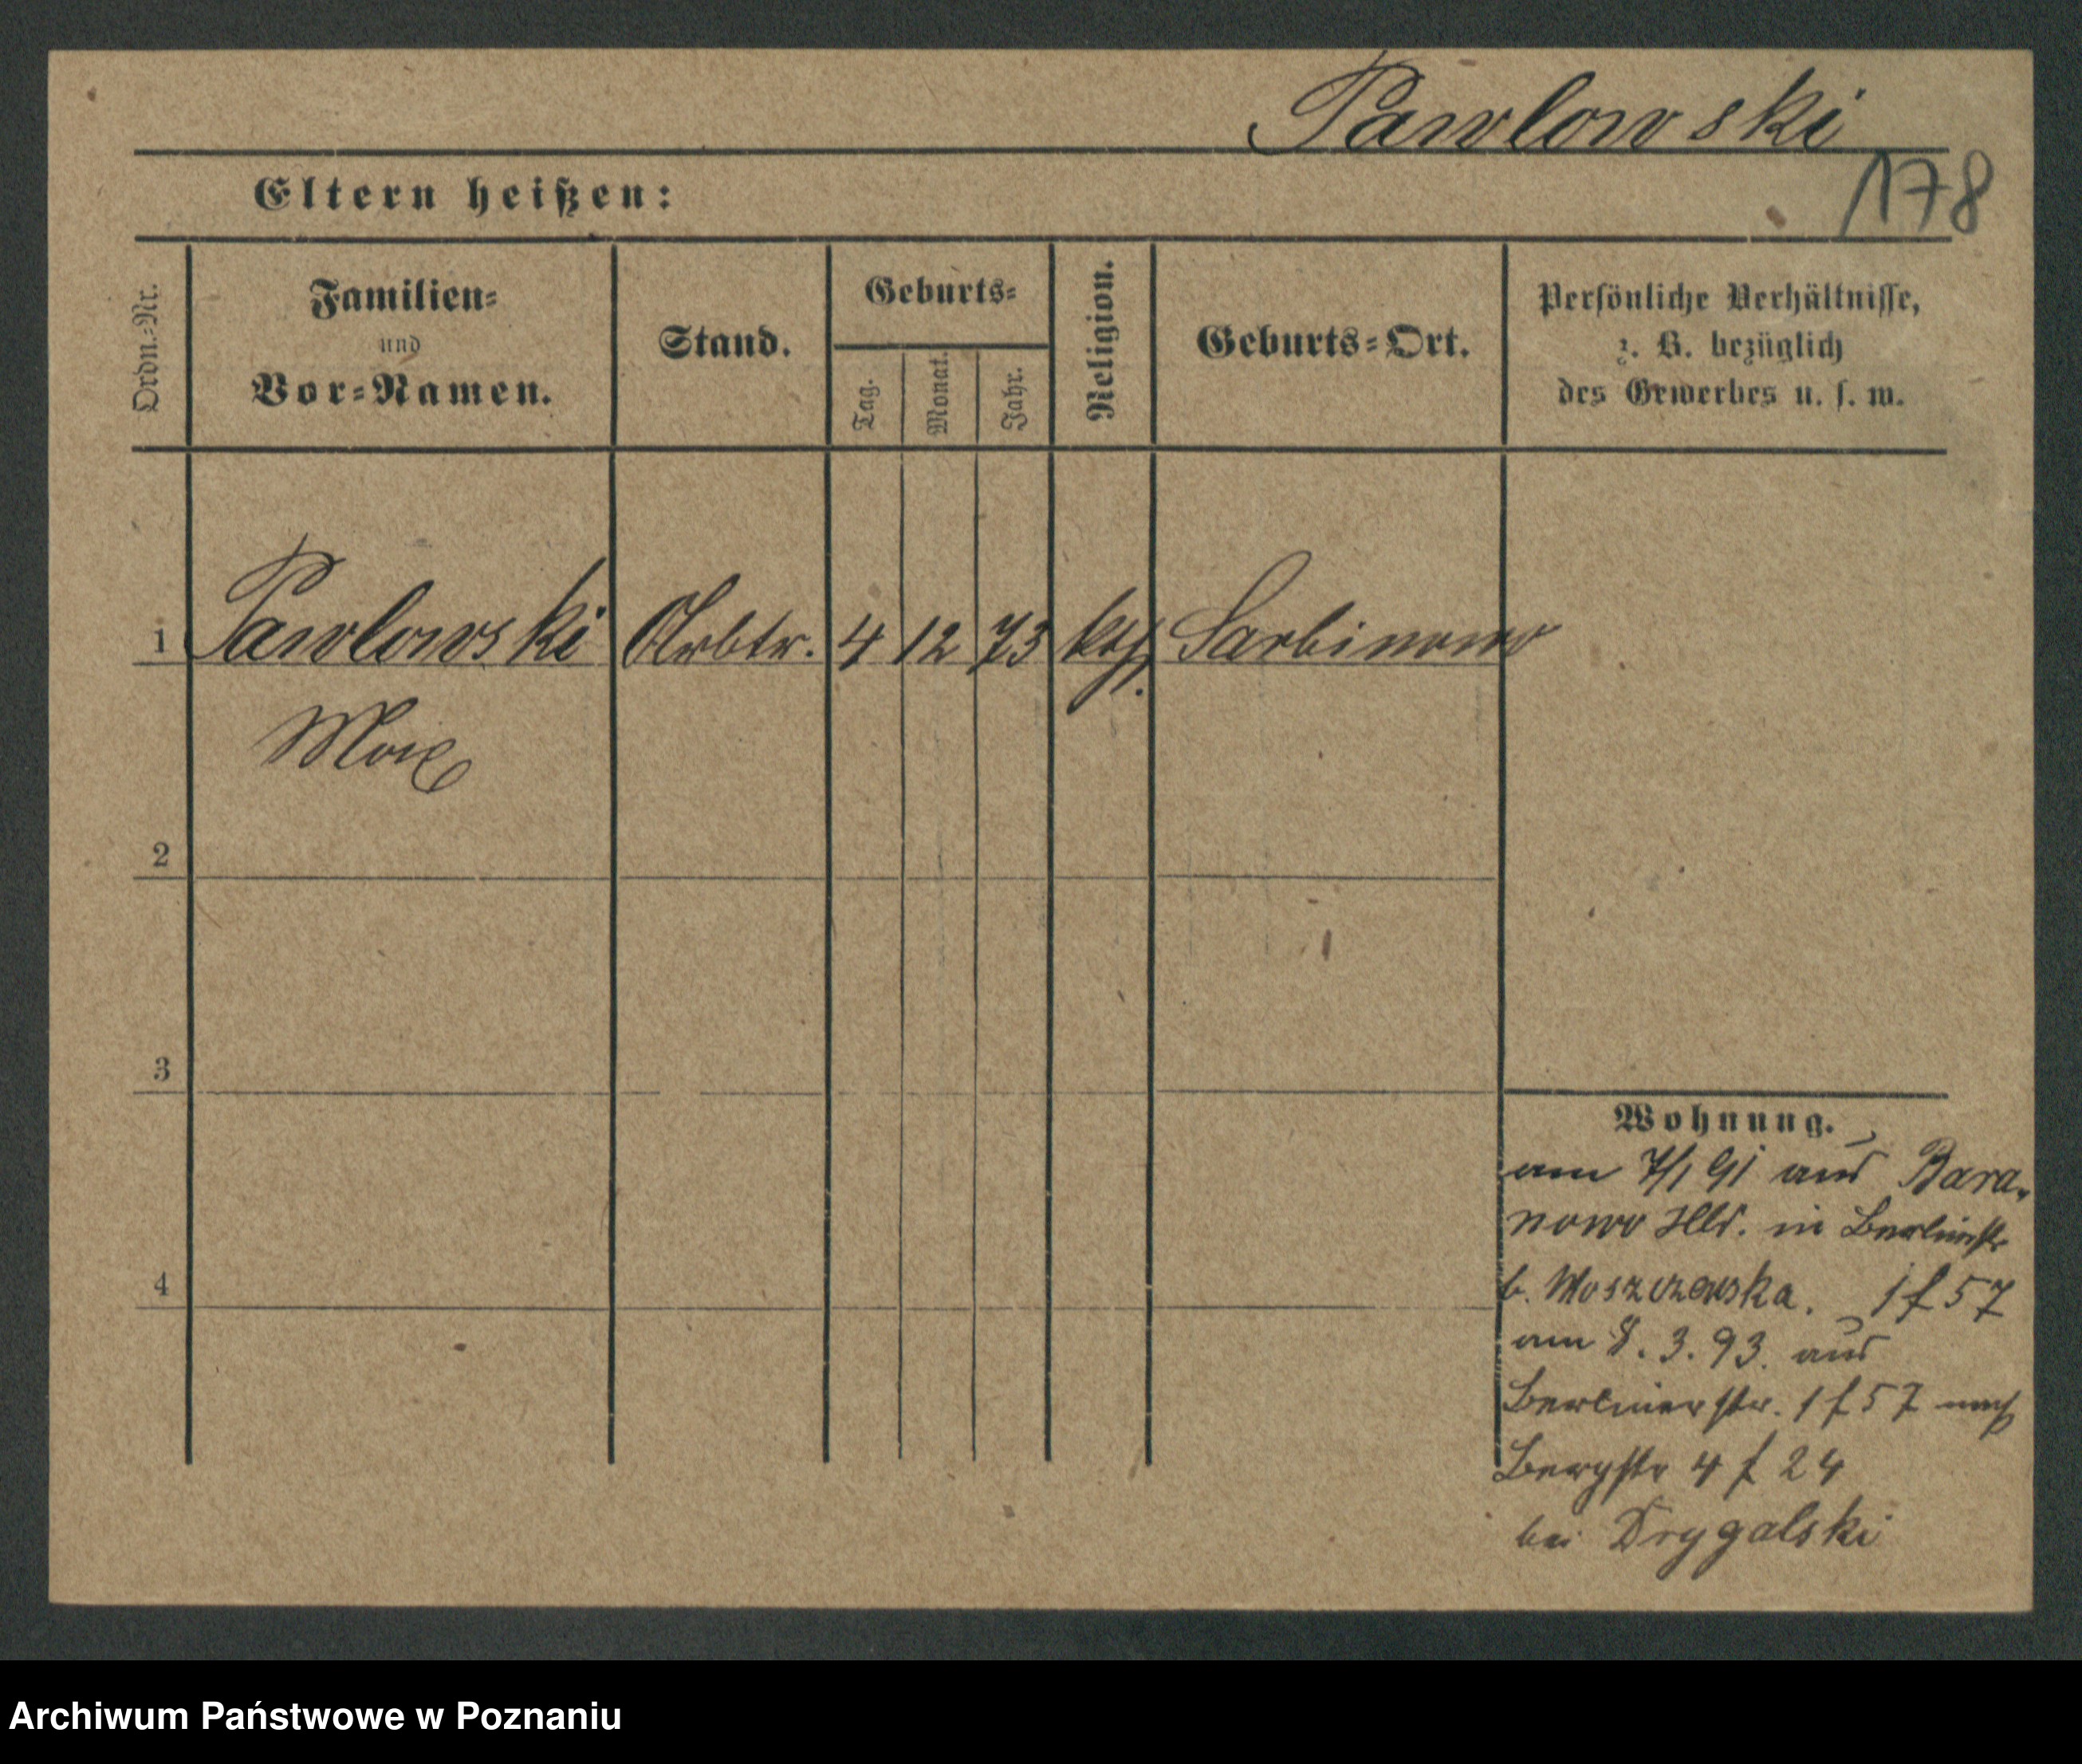 Pawlowski
178
Eltern heißen:
Ordn.-Nr.
Familien-
und
Vor-Namen.
Stand.
Geburts-
Tag.
Monat.
Jahr.
Religion.
Geburts-Ort.
Persönliche Verhältnisse,
z. B. bezüglich
des Gewerbes u. s. w.
1 Pawlowski Arbtr. 4 12 73 kth. Sarbinowo
Max
2
3
4
Wohnung.
am 7/1 91 aus Bara-
nowo in Berlinerstr
b. Moszczenska. 1 f 57
am 8. 3. 93. aus
Berlinerstr. 1 f 57 nach
Bergstr 4 f 24
bei Drygalski
Archiwum Państwowe w Poznaniu